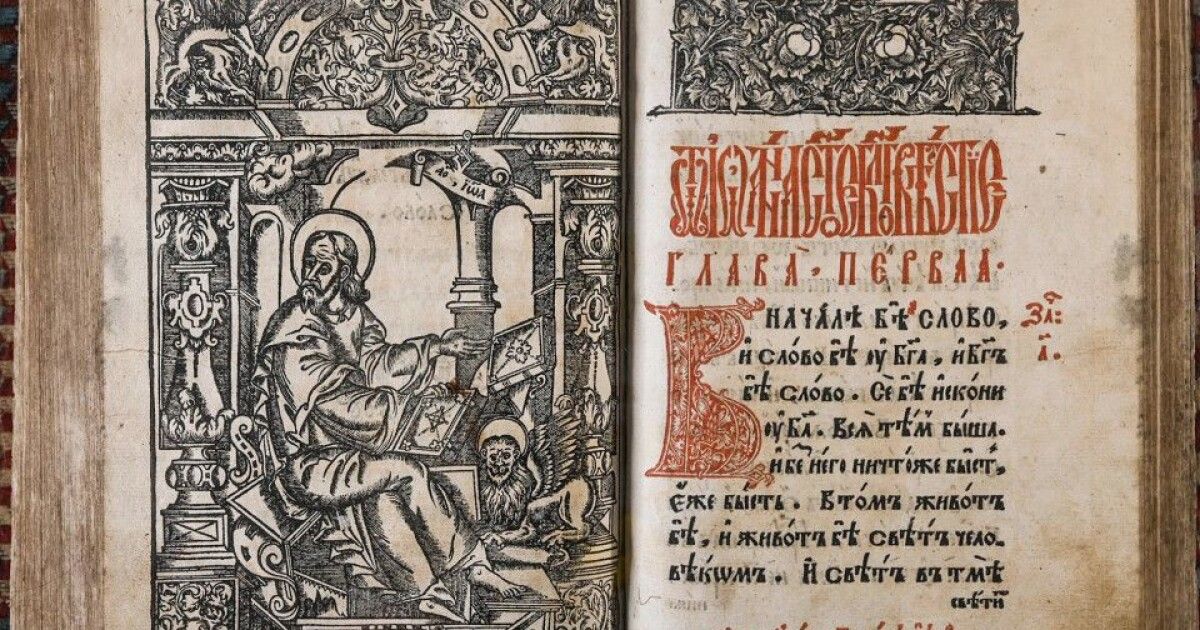 ѿ іѡа́нна ст҃ое бл҃говѣствова́нїе
ГЛАВА̀ · ПЕ́РВАѦ ·
ВНАЧА́ЛѢ БѢ̀ СЛО́ВО,
и҆ сло́во бѣ̀ ᲂу҆ бг҃а, и҆ бг҃ъ
бѣ̀ сло́во. Се́ бѣ̀ и҆сконѝ
ᲂу҆ бг҃а. Всѧ̀ тѣ́мъ бы́ша.
и҆ беⷥ него̀ ничто́же бы́сть,
є҆́же бы́сть. В то́мъ живо́тъ
бѣ̀, и҆ живо́тъ бѣ̀ свѣ́тъ чело-
вѣ́кѡмъ. И҆ свѣ́тъ в тмѣ̀
свѣ́ти
заⷱ
а҃.